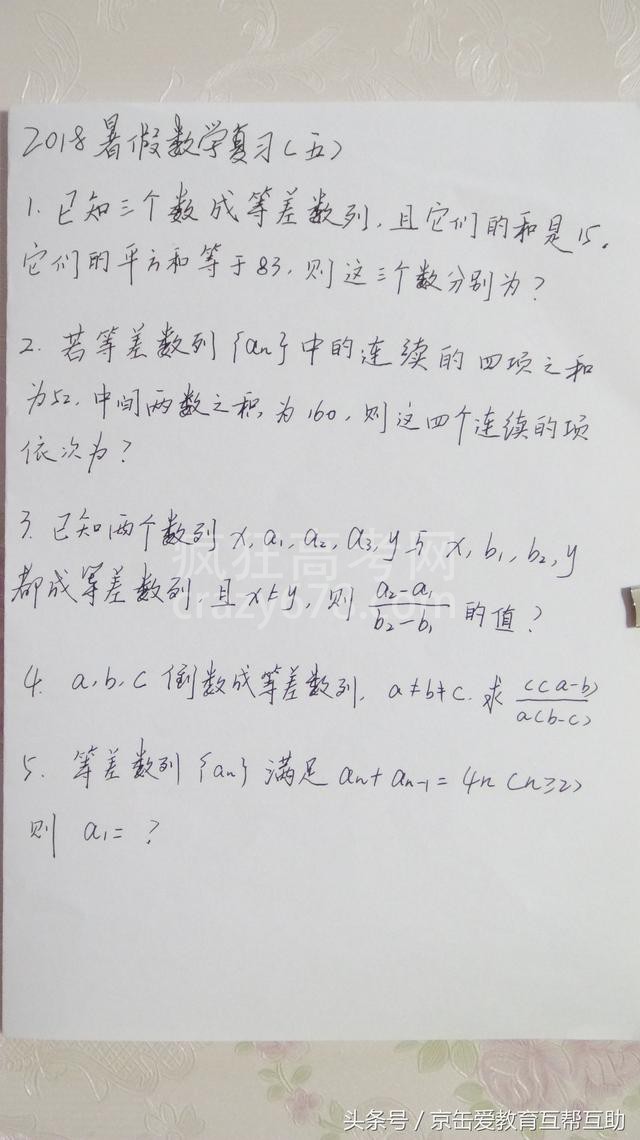 2018暑假数学复习(五)
1. 已知三个数成等差数列,且它们的和是15,
它们的平方和等于83,则这三个数分别为?
2. 若等差数列{an}中的连续的四项之和
为52,中间两数之积为160,则这四个连续的项
依次为?
3. 已知两个数列x,a1,a2,a3,y与x,b1,b2,y
都成等差数列,且x≠y,则 (a2-a1)/(b2-b1) 的值?
疯狂高考网
crazy578.com
4. a,b,c倒数成等差数列,a≠b≠c.求 c(a-b)/a(b-c)
5. 等差数列{an}满足an+an-1=4n(n≥2)
则 a1=?
头条号/京缶爱教育互帮互助